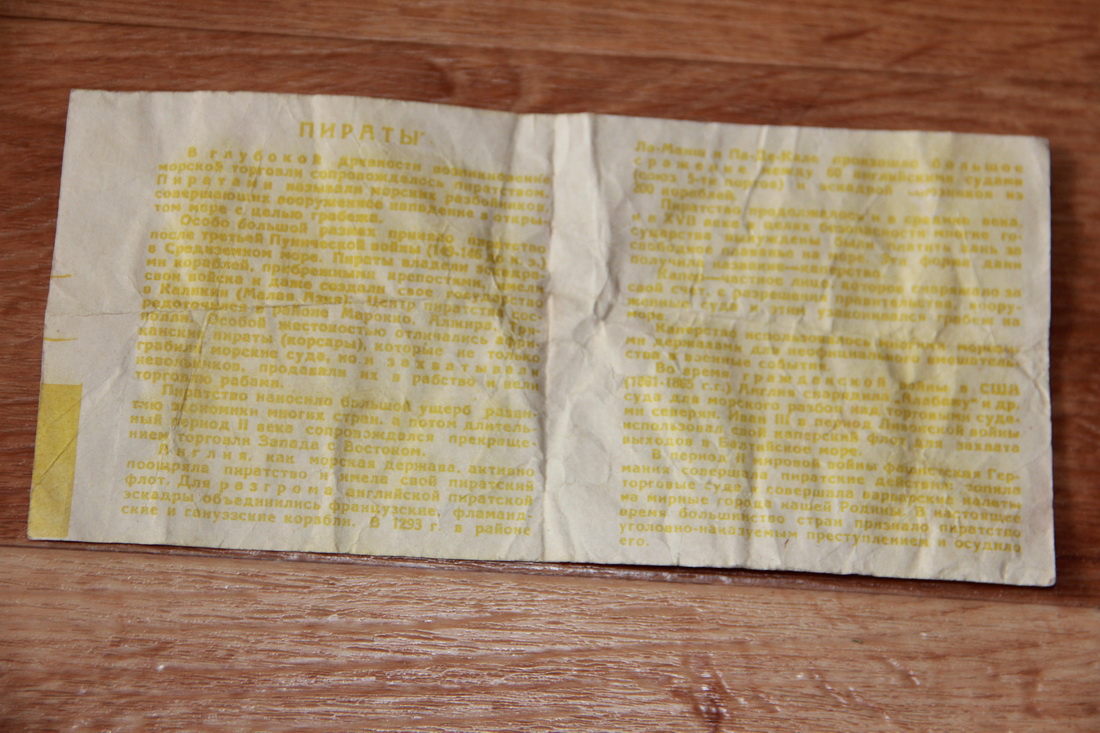 ПИРАТЫ
В глубокой древности возникновение
морской торговли сопровождалось пиратством.
Пиратами называли морских разбойников,
совершающих вооруженное нападение в откры-
том море с целью грабежа.
Особо большой размах приняло пиратство
после третьей Пунической войны
в Средиземном море. Пираты владели
ми кораблей, прибрежными крепостями, имели
свои войска и даже создали свое государство
в Каликии (Малая Азия). Центр пиратства сос-
редоточился в районе Марокко, Алжира,
Особой жестокостью отличались
канские пираты (корсары), которые не только
грабили морские суда, но и захватывали
невольников, продавали их в рабство и вели
торговлю рабами.
Пиратство наносило большой ущерб разви-
тию экономики многих стран, а потом длитель-
ный период II века сопровождался прекраще-
нием торговли Запада с Востоком.
Англия, как морская держава, активно
поощряла пиратство и имела свой пиратский
флот. Для разгрома английской пиратской
эскадры объединились французские, фламанд-
ские и гануэзские корабли. В 1293 г. в районе
Ла-Манш и Па-Де-Кале произошло большое
сражение между 60 английскими судами
(союз 5-ти портов) и эскадрой из
200 кораблей.
Пиратство продолжалось и в средние века,
и в XVII веке в целях безопасности многие го-
сударства вынуждены были платить дань за
свободное плавание на море. Эта форма дани
получила название—каперство.
Капер—частное лицо, которое снаряжало на
свой счет с разрешения правительства воору-
женный корабль и занималось разбоем на
море.
Каперство использовалось многими морски-
ми державами. Для него
ства и военные события.
Во время гражданской войны в США
(1861-1865 г.г.) Англия снарядила "Алабаму" и др.
суда для морского разбоя над торговыми суда-
ми северян. Иван III в период Ливонской войны
использовал свой каперский флот для захвата
выходов в Балтийское море.
В период II мировой войны фашистская Гер-
мания совершала пиратские действия: топила
торговые суда, совершала варварские налеты
на мирные города нашей Родины. В настоящее
время большинство стран признало пиратство
уголовно-наказуемым преступлением и осудило
его.